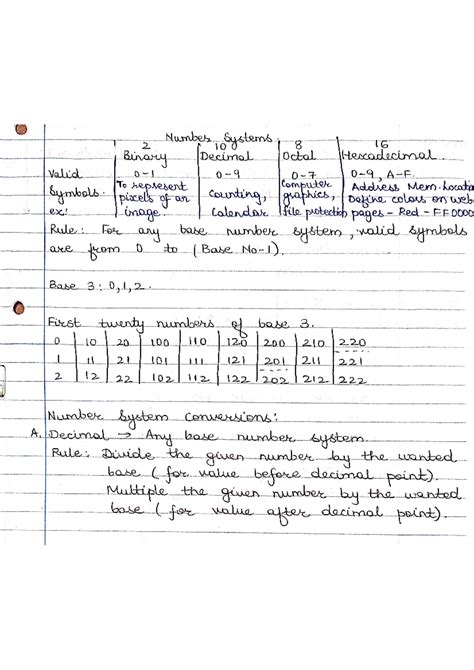 Number Systems
2 10 8 16
Binary Decimal Octal Hexadecimal
Valid 0-1 0-9 0-7 0-9, A-F.
Symbols. To represent Computer Address Mem. Locatio
pixels of an Counting, graphics, Define colors on web
ex: image. Calendar file protection pages - Red - FF0000
Rule: For any base number system, valid symbols
are from 0 to (Base No-1).
Base 3: 0,1,2.
First twenty numbers of base 3.
0 10 20 100 110 120 200 210 220
1 11 21 101 111 121 201 211 221
2 12 22 102 112 122 202 212 222
Number System conversions:
A. Decimal → Any base number system.
Rule: Divide the given number by the wanted
base (for value before decimal point).
Multiple the given number by the wanted
base (for value after decimal point).